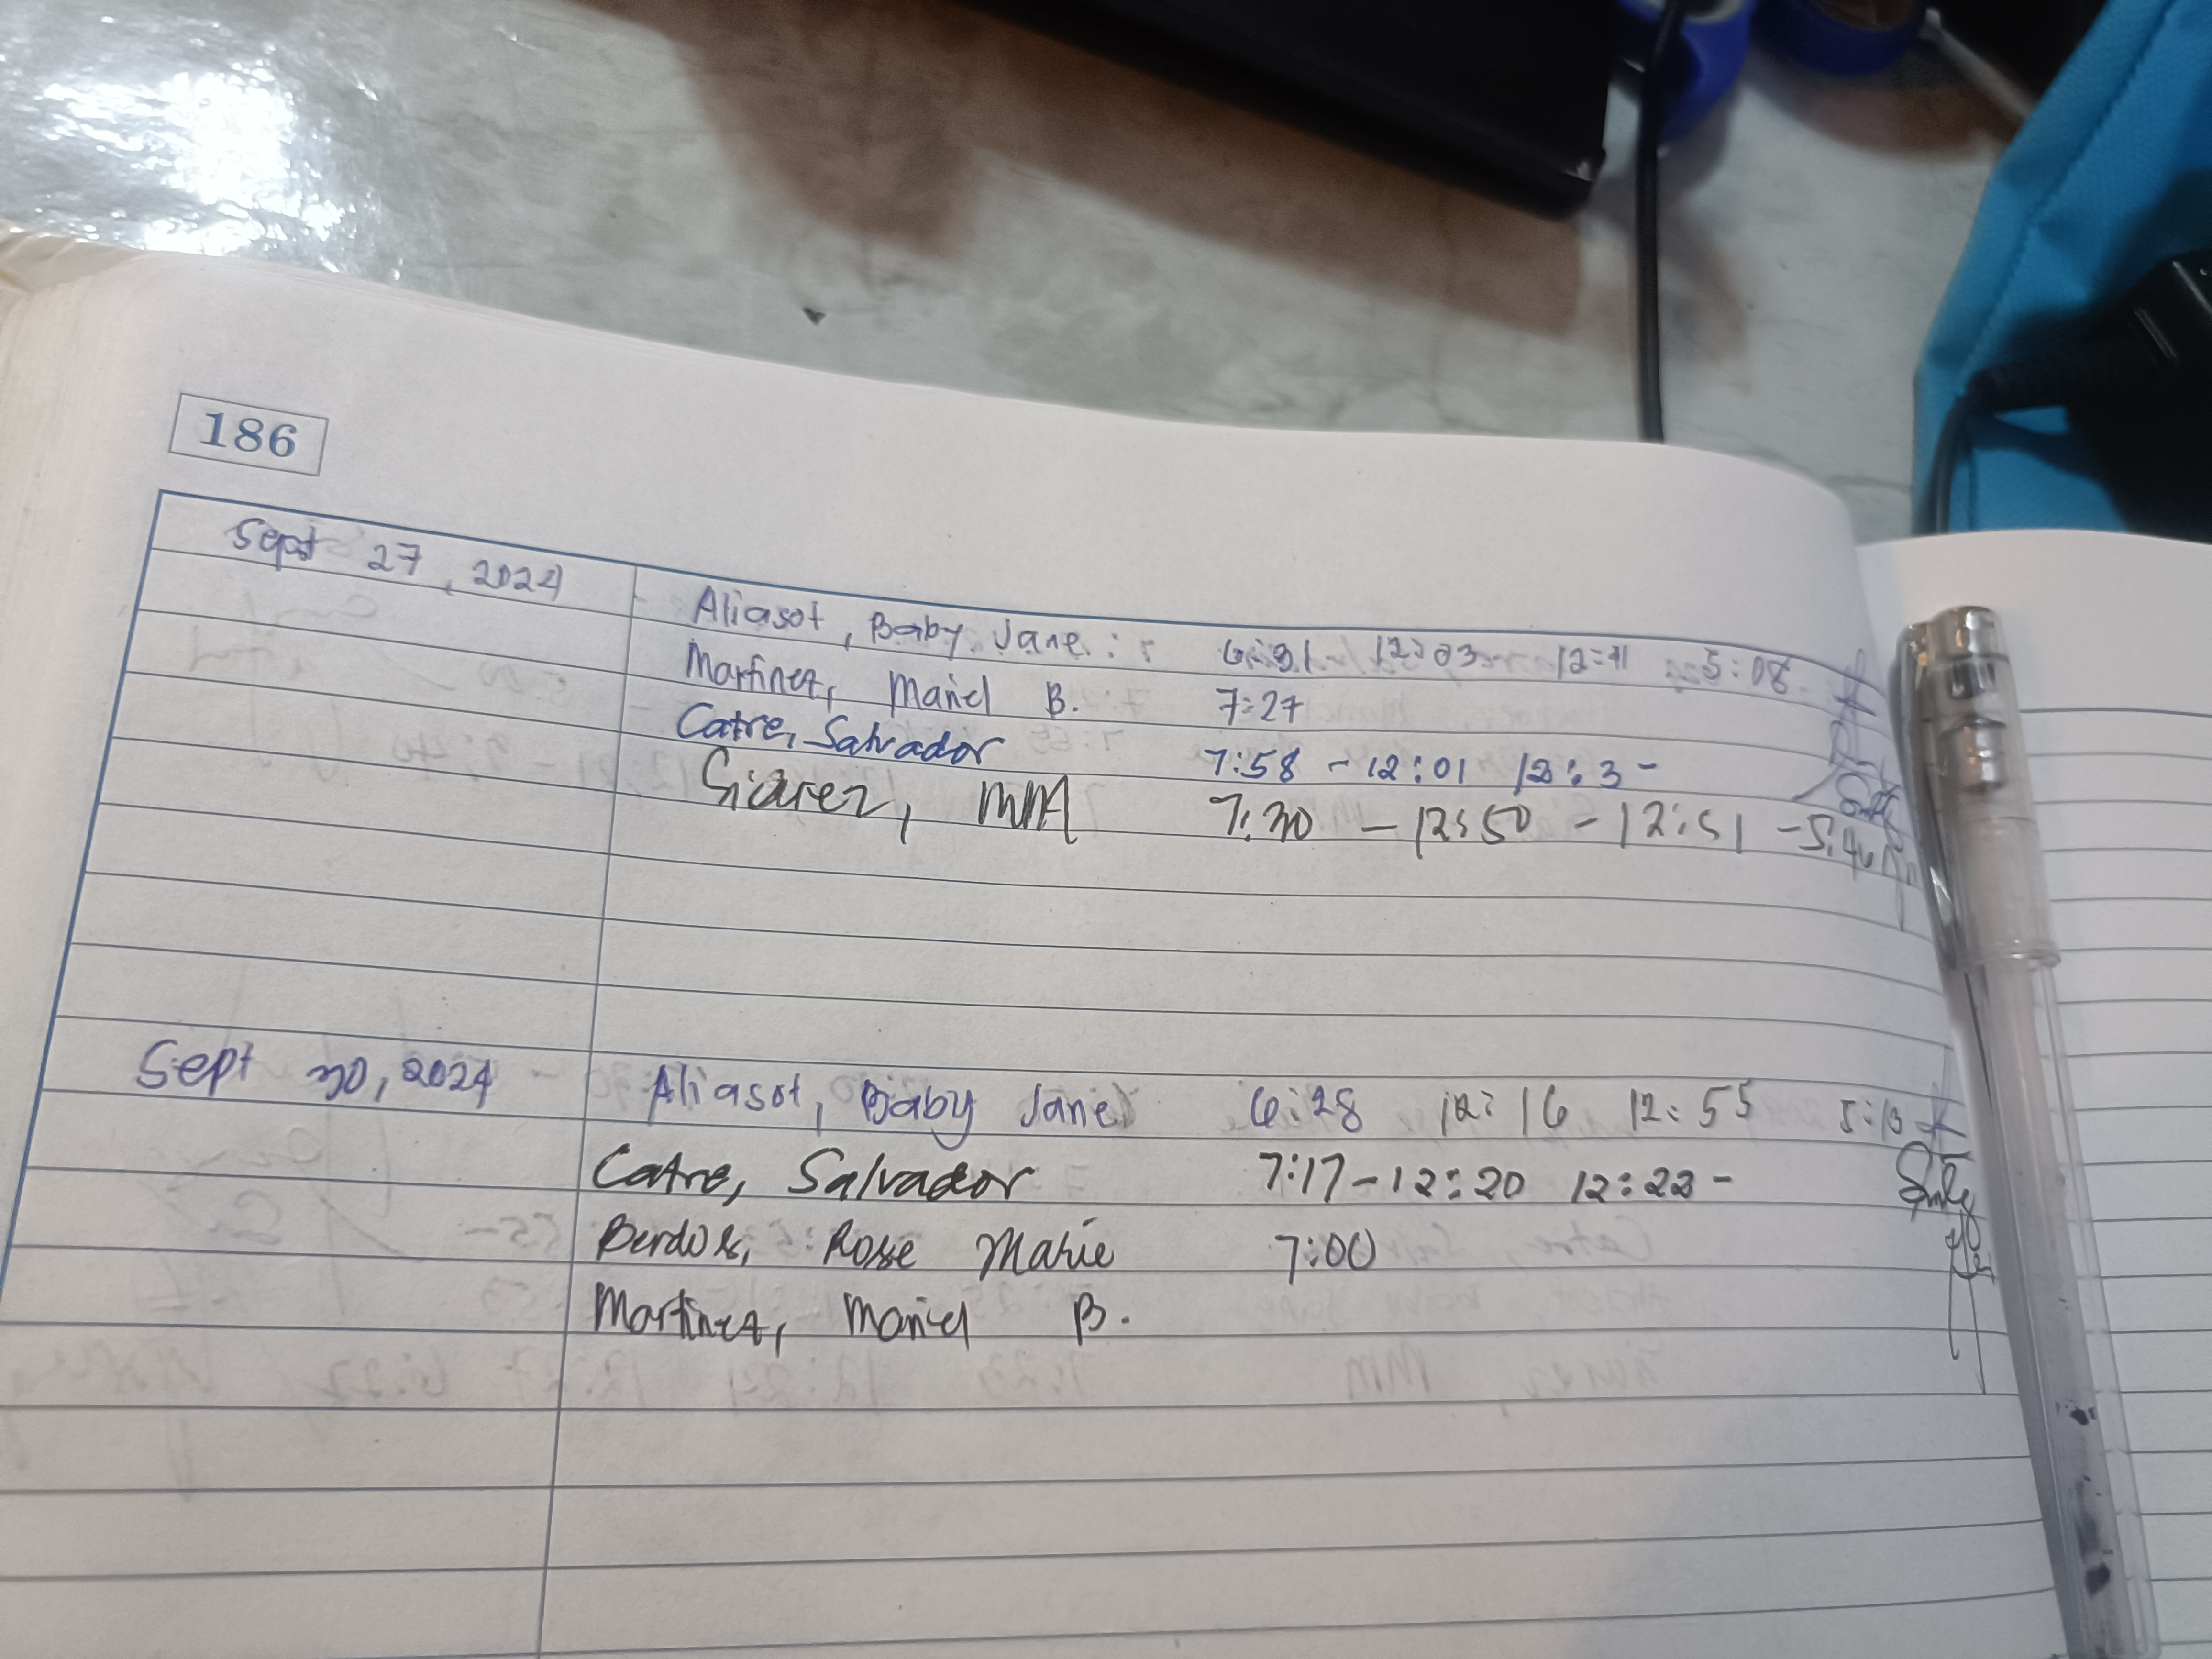 186
Sept 27, 2024
Aliasot, Baby Jane : 6:31 12:03 12:41 5:08
Martinez, Mariel B. 7:27
Catre, Salvador 7:58 - 12:01 12:3 -
Giarez, MM 7:30 - 12:50 - 12:51 - 5:40
Sept 30, 2024 Aliasot, Baby Jane 6:28 12:16 12:55 5:13
Catre, Salvador 7:17 - 12:20 12:22 -
Rose Marie 7:00
Martinez, Mariel B.